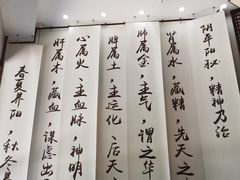 阴平阳秘，精神乃治
肾属水，藏精，先天之
肺属金，主气，谓之华
脾属土，主运化，后天
心属火，主血脉，神明
肝属木，藏血，谋虑出
春夏养阳，秋冬